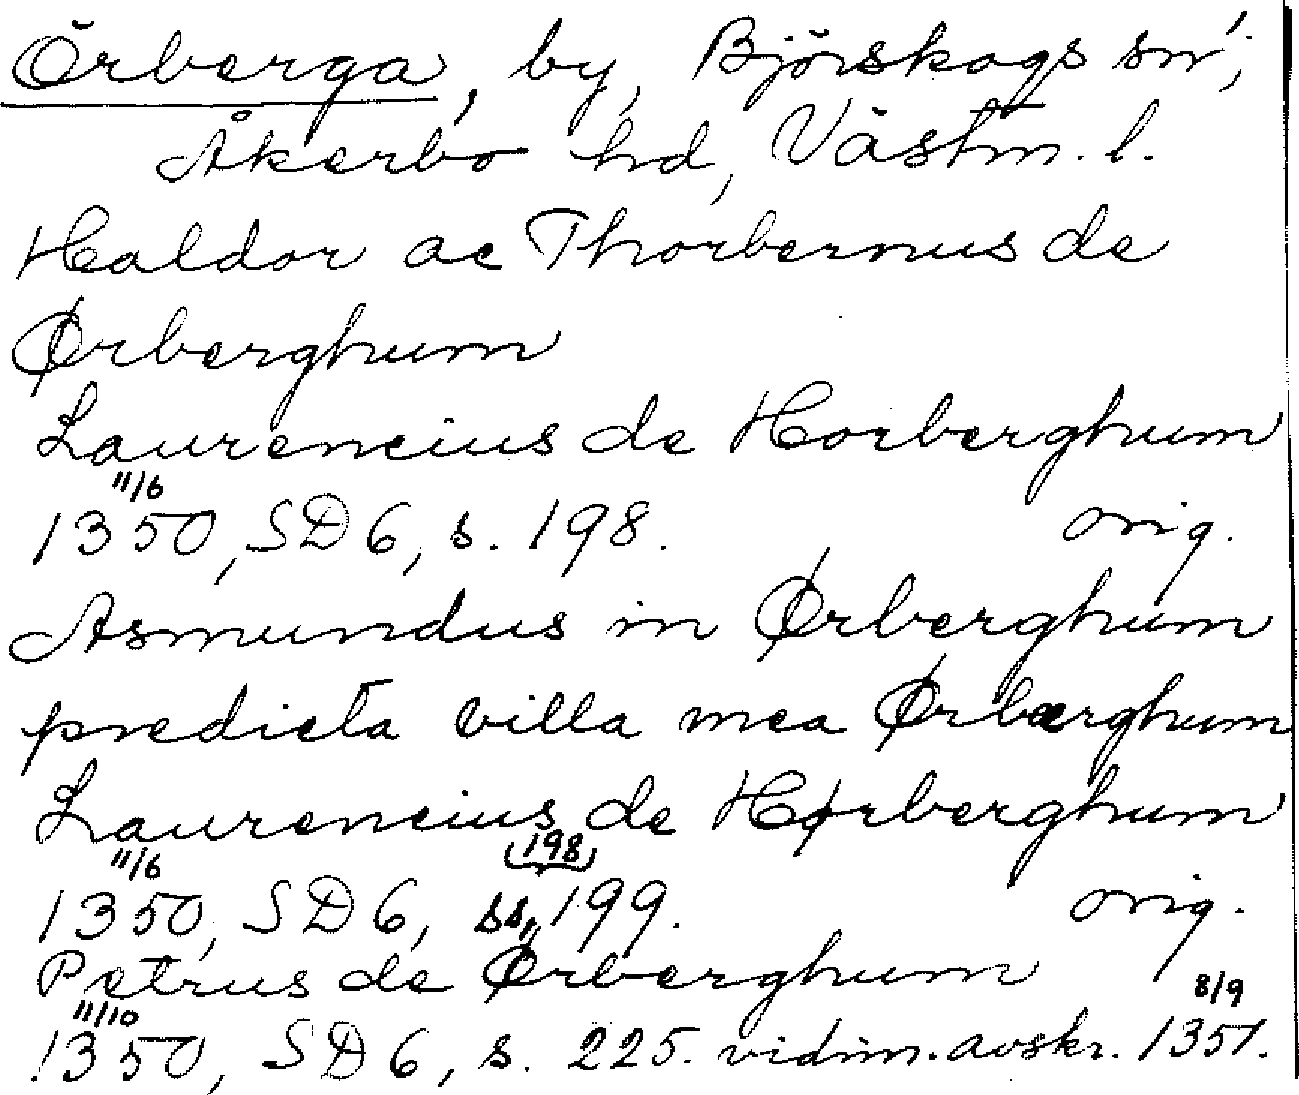 Örberga, by, Björskogs sn,
Åkerbo hd, Västm. l.
Haldor ac Thorbernus de
Ørberghum
Laurencius de Horberghum
11/6
1350, SD 6, s. 198. orig.
Asmundus in Ørberghum
predicta villa mea Ørbærghum
Laurencius de Hørberghum
11/6 198
1350, SD 6, ss, 199. orig.
Petrus de Ørberghum
11/10 8/9
1350, SD 6, s. 225. vidim. avskr. 1351.